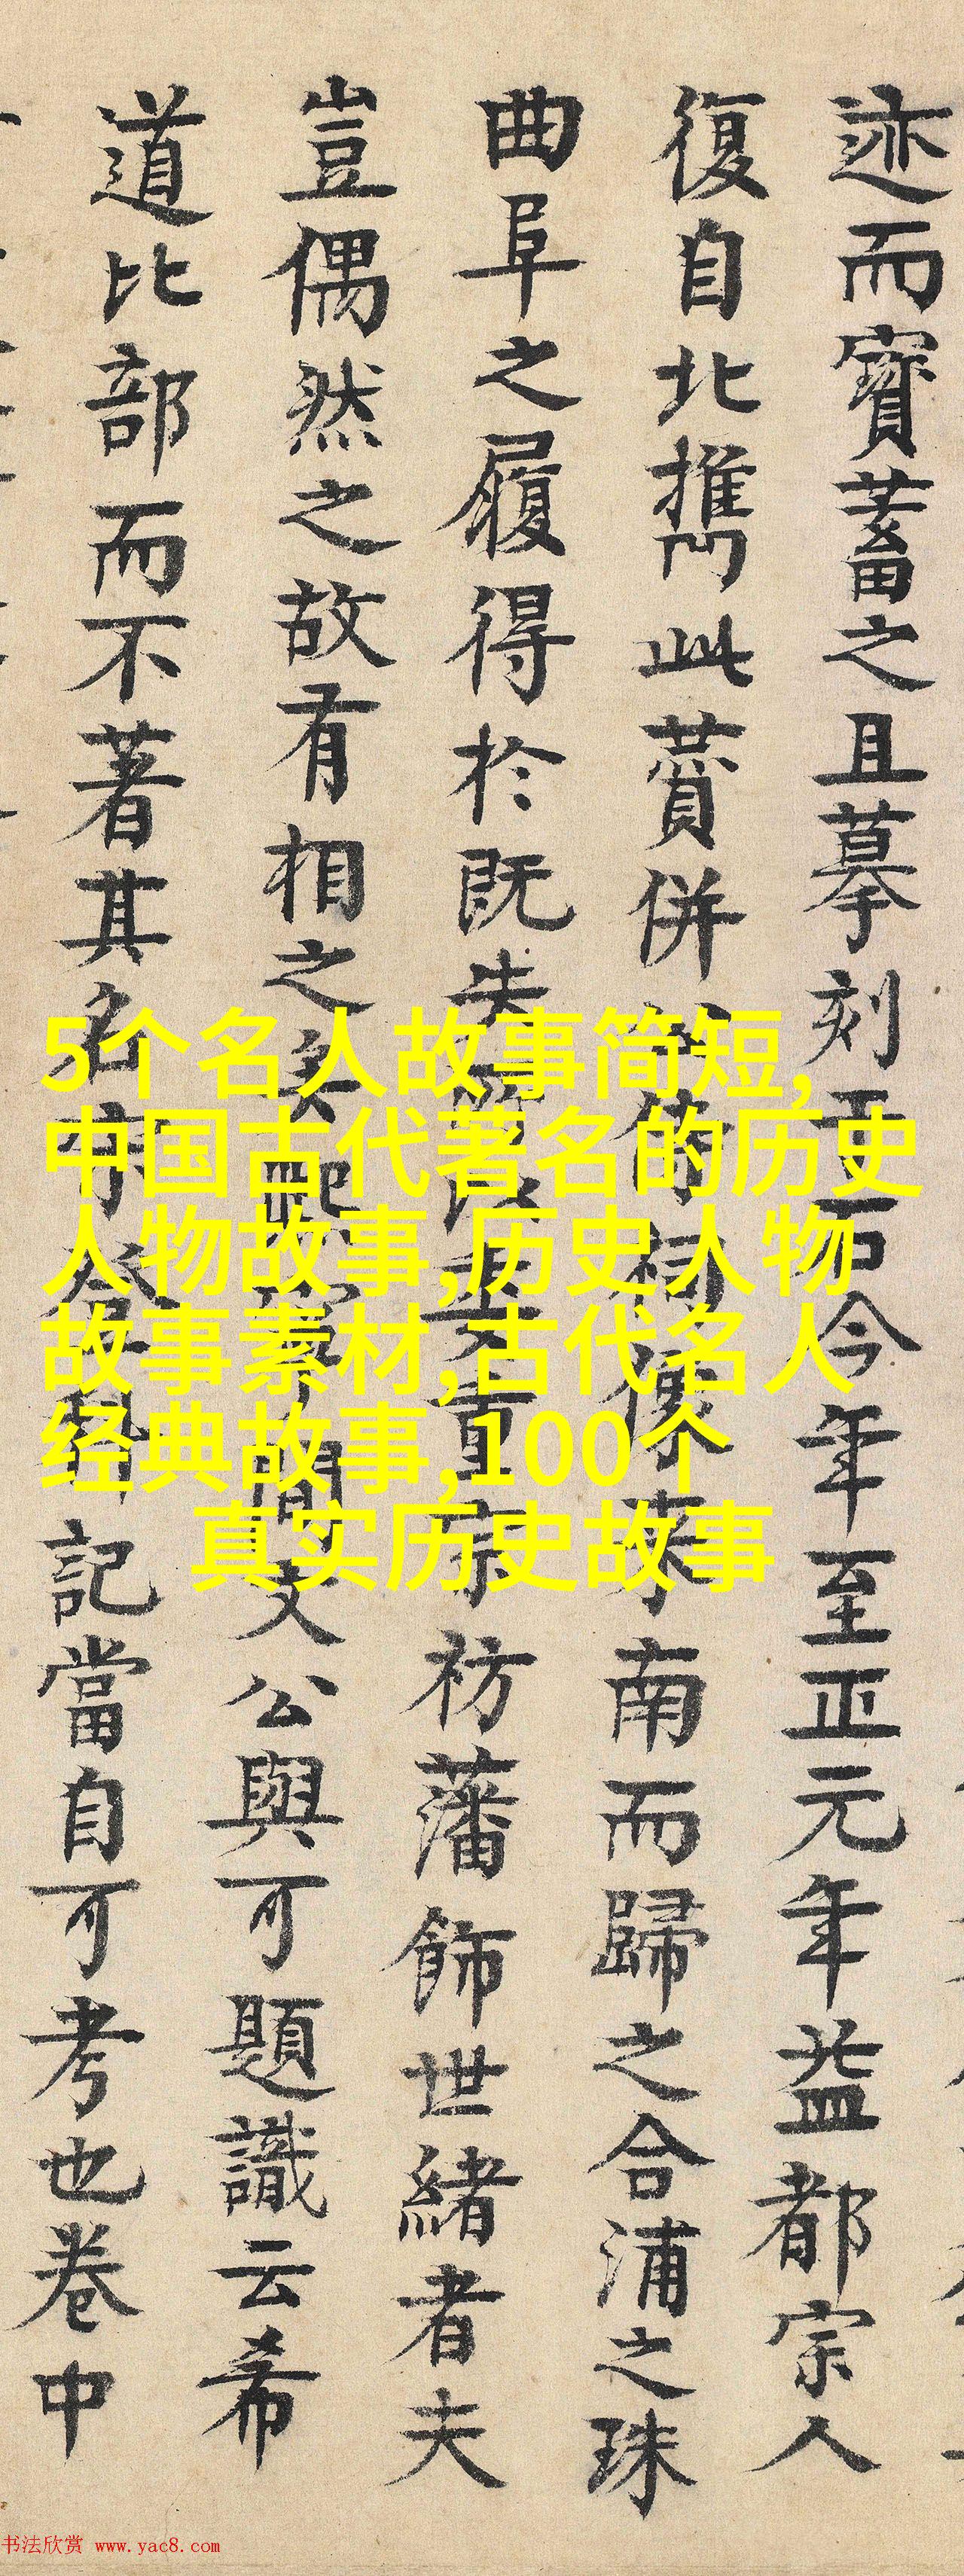 迹而寶蓄之且摹刻于石今年至正元年益都宗人
復自北擕此賛併祠像来南而歸之合浦之珠
曲阜之履得於既失重宗祊藩飾世緒者夫
豈偶然之故有相之矣熙寧間文公與可題識云希
道比部而不著其名字登科記當自可考也卷中
5个名人故事简短,
中国古代著名的历史
人物故事,历史人物
故事素材,古代名人
经典故事,100个
真实历史故事
书法欣赏 www.yac8.com